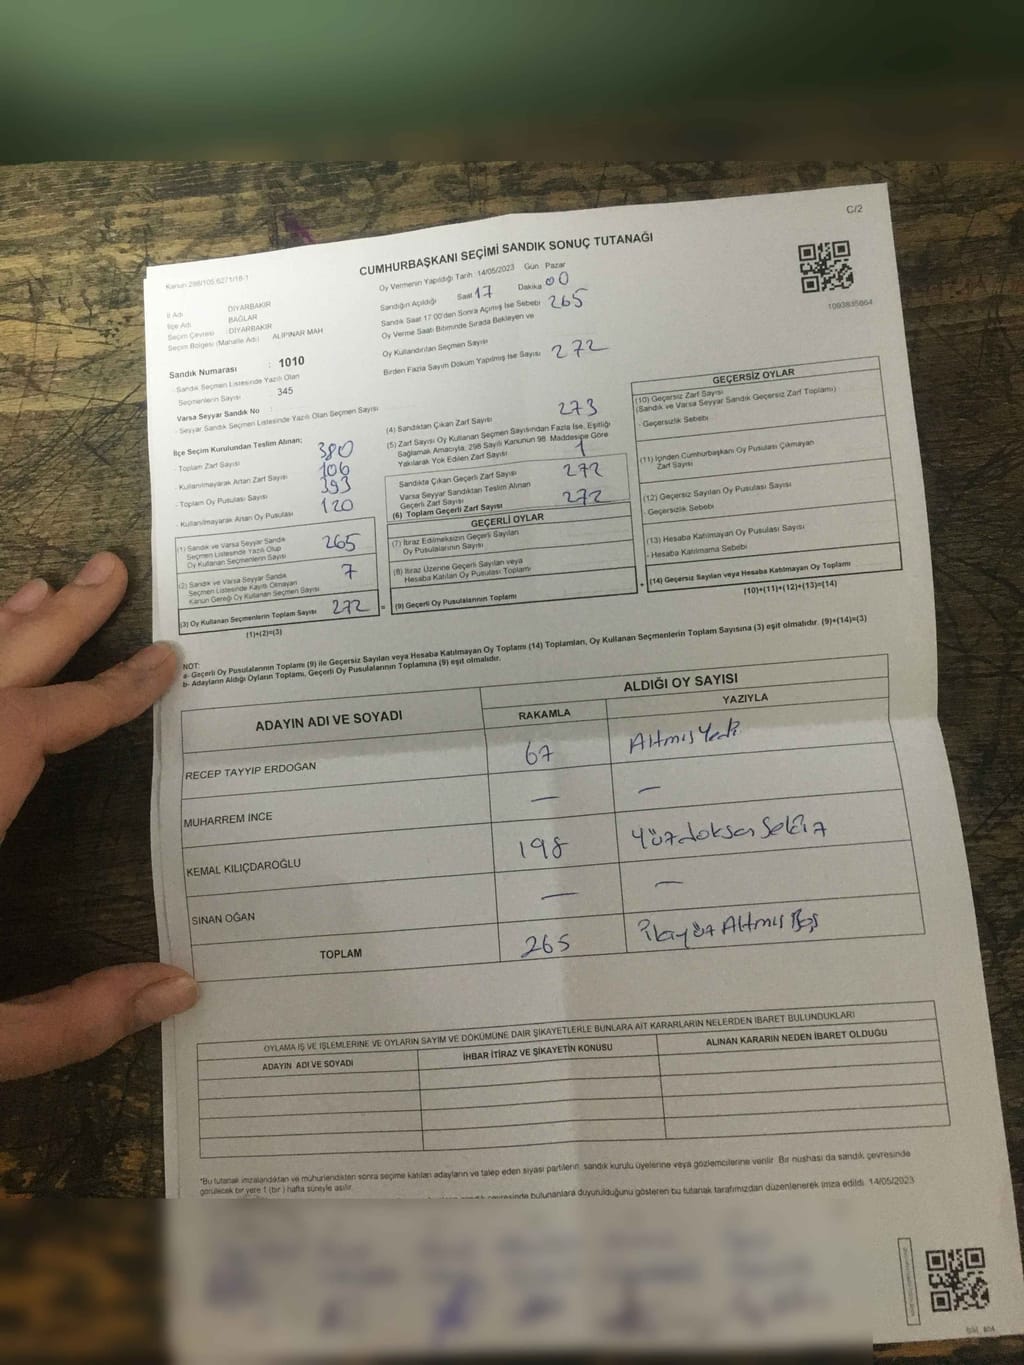 C/2
Kanun 298/105 6271/18-1
CUMHURBAŞKANI SEÇİMİ SANDIK SONUÇ TUTANAĞI
1093835664
İl Adı : DİYARBAKIR
İlçe Adı : BAĞLAR
Seçim Çevresi : DİYARBAKIR
Seçim Bölgesi (Mahalle Adı) : ALİPINAR MAH
Sandık Numarası : 1010
- Sandık Seçmen Listesinde Yazılı Olan
Seçmenlerin Sayısı : 345
Varsa Seyyar Sandık No :
- Seyyar Sandık Seçmen Listesinde Yazılı Olan Seçmen Sayısı
İlçe Seçim Kurulundan Teslim Alınan;
- Toplam Zarf Sayısı 380
- Kullanılmayarak Artan Zarf Sayısı 106
- Toplam Oy Pusulası Sayısı 393
- Kullanılmayarak Artan Oy Pusulası 120
(1) Sandık ve Varsa Seyyar Sandık
Seçmen Listesinde Yazılı Olup
Oy Kullanan Seçmenlerin Sayısı 265
(2) Sandık ve Varsa Seyyar Sandık
Seçmen Listesinde Kayıtlı Olmayan
Kanun Gereği Oy Kullanan Seçmen Sayısı 7
(3) Oy Kullanan Seçmenlerin Toplam Sayısı 272 =
(1)+(2)=(3)
Oy Vermenin Yapıldığı Tarih : 14/05/2023 Gün : Pazar
Sandığın Açıldığı Saat 17 Dakika 00
Sandık Saat 17:00'den Sonra Açılmış İse Sebebi 265
Oy Verme Saati Bitiminde Sırada Bekleyen ve
Oy Kullandırılan Seçmen Sayısı
Birden Fazla Sayım Döküm Yapılmış İse Sayısı 272
(4) Sandıktan Çıkan Zarf Sayısı 273
(5) Zarf Sayısı Oy Kullanan Seçmen Sayısından Fazla İse, Eşitliği
Sağlamak Amacıyla; 298 Sayılı Kanunun 98. Maddesine Göre
Yakılarak Yok Edilen Zarf Sayısı 1
Sandıkta Çıkan Geçerli Zarf Sayısı 272
Varsa Seyyar Sandıktan Teslim Alınan
Geçerli Zarf Sayısı
(6) Toplam Geçerli Zarf Sayısı 272
GEÇERLİ OYLAR
(7) İtiraz Edilmeksizin Geçerli Sayılan
Oy Pusulalarının Sayısı
(8) İtiraz Üzerine Geçerli Sayılan veya
Hesaba Katılan Oy Pusulası Toplamı
(9) Geçerli Oy Pusulalarının Toplamı +
GEÇERSİZ OYLAR
(10) Geçersiz Zarf Sayısı
(Sandık ve Varsa Seyyar Sandık Geçersiz Zarf Toplamı)
- Geçersizlik Sebebi
(11) İçinden Cumhurbaşkanı Oy Pusulası Çıkmayan
Zarf Sayısı
(12) Geçersiz Sayılan Oy Pusulası Sayısı
- Geçersizlik Sebebi
(13) Hesaba Katılmayan Oy Pusulası Sayısı
- Hesaba Katılmama Sebebi
(14) Geçersiz Sayılan veya Hesaba Katılmayan Oy Toplamı
(10)+(11)+(12)+(13)=(14)
NOT:
a- Geçerli Oy Pusulalarının Toplamı (9) ile Geçersiz Sayılan veya Hesaba Katılmayan Oy Toplamı (14) Toplamları, Oy Kullanan Seçmenlerin Toplam Sayısına (3) eşit olmalıdır. (9)+(14)=(3)
b- Adayların Aldığı Oyların Toplamı, Geçerli Oy Pusulalarının Toplamına (9) eşit olmalıdır.
ADAYIN ADI VE SOYADI
ALDIĞI OY SAYISI
RAKAMLA YAZIYLA
RECEP TAYYIP ERDOĞAN 67 Altmış Yedi
MUHARREM İNCE — —
KEMAL KILIÇDAROĞLU 198 Yüzdoksan Sekiz
SİNAN OĞAN — —
TOPLAM 265 İkiyüz Altmış Beş
OYLAMA İŞ VE İŞLEMLERİNE VE OYLARIN SAYIM VE DÖKÜMÜNE DAİR ŞİKAYETLERLE BUNLARA AİT KARARLARIN NELERDEN İBARET BULUNDUKLARI
ADAYIN ADI VE SOYADI İHBAR İTİRAZ VE ŞİKAYETİN KONUSU ALINAN KARARIN NEDEN İBARET OLDUĞU
*Bu tutanak imzalandıktan ve mühürlendikten sonra seçime katılan adayların ve talep eden siyasi partilerin, sandık kurulu üyelerine veya gözlemcilerine verilir. Bir nüshası da sandık çevresinde
görülecek bir yere 1 (bir) hafta süreyle asılır.
çevresinde bulunanlara duyurulduğunu gösteren bu tutanak tarafımızdan düzenlenerek imza edildi. 14/05/2023